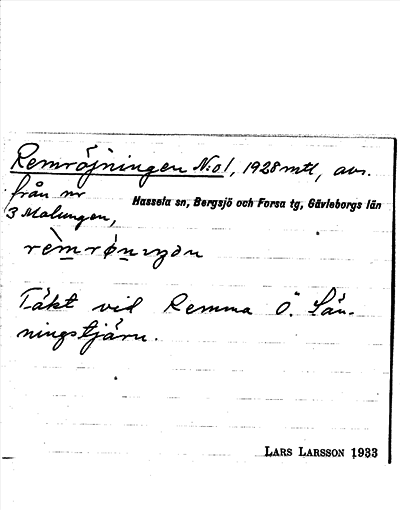 Remröjningen N:o 1, 1928 mtl, avs.
från nr
3 Malungen,
Hassela sn, Bergsjö och Forsa tg, Gävleborgs län
Täkt vid Remma Ö. Län-
ningstjärn.
LARS LARSSON 1933